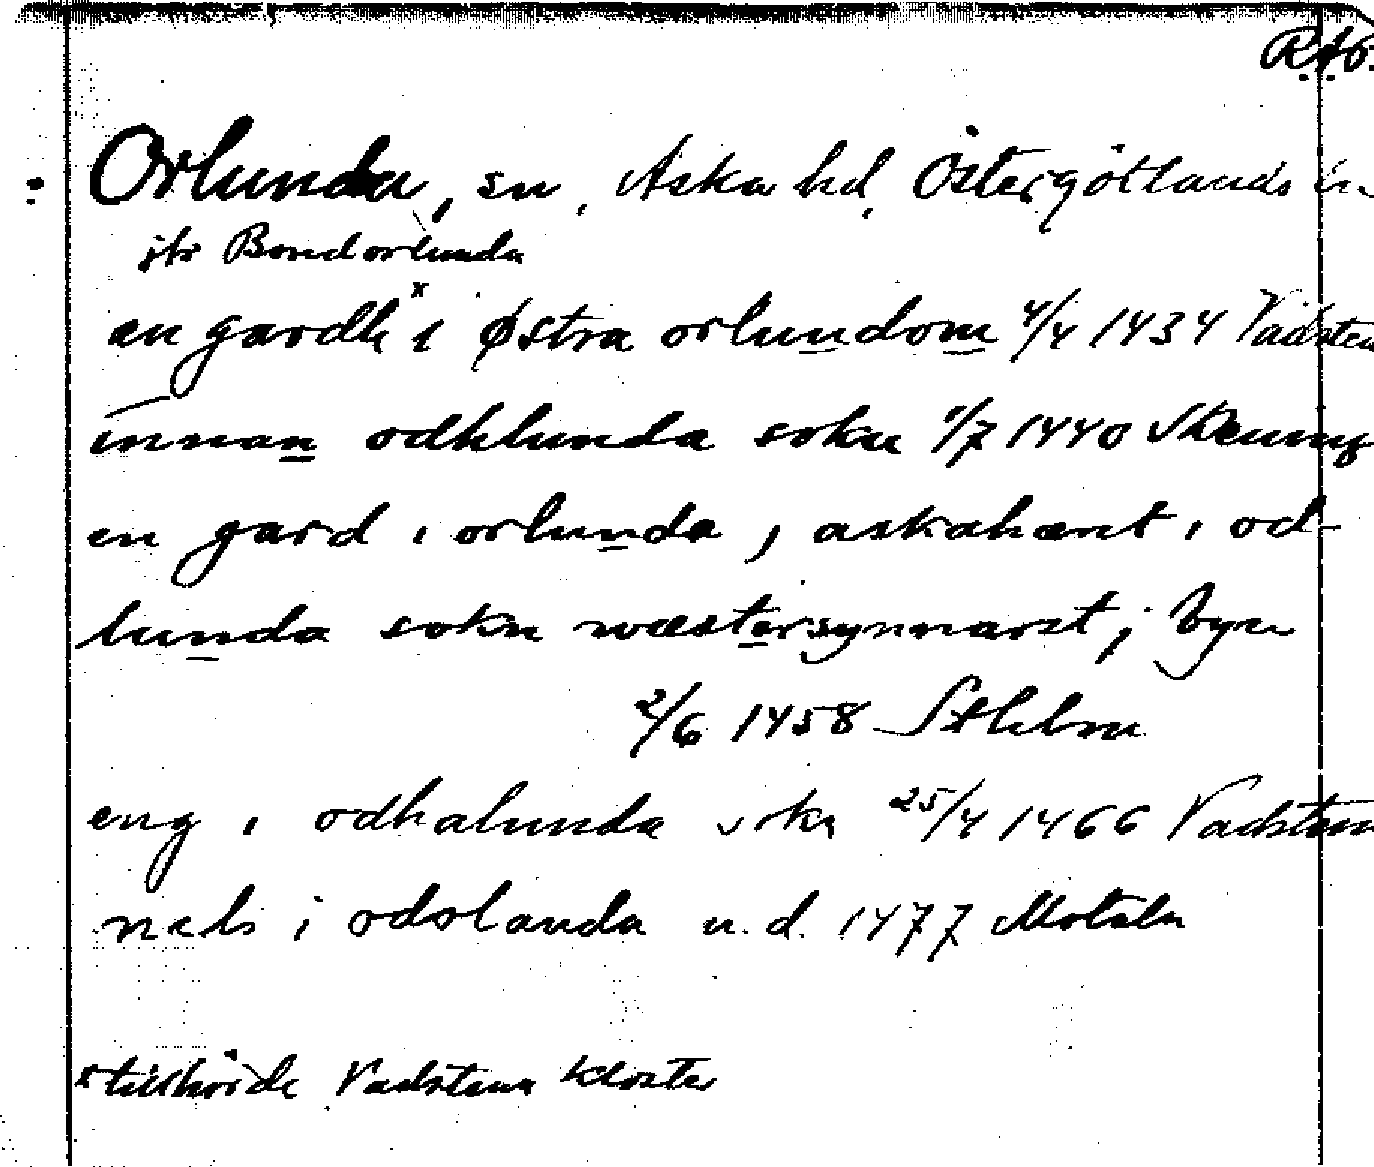 RAB.
Orlunda, sn, Aska hd, Östergötlands län
jfr Bondorlunda
en gardh x i østra orlundom 4/4 1434 Vadstena
innan odhlunda sokn 1/7 1440
en gard i orlunda, askahæret i od-
lunda sokn wæstersynnarst i byn
2/6 1458 Sthlm
eng i odhalunda sokn 25/4 1466 Vadstena
nels i odolanda u.d. 1477 Motala
x tillhörde Vadstena kloster